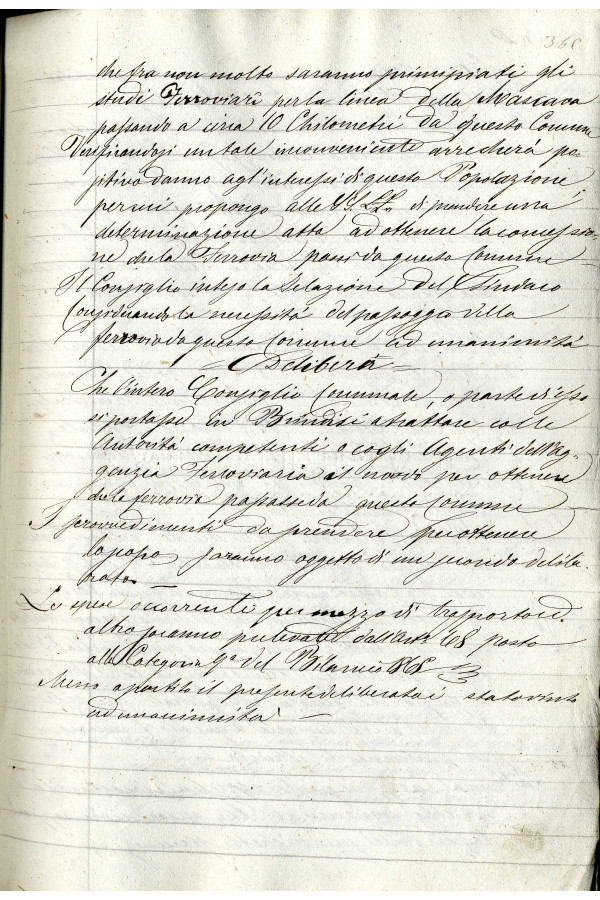 360
che fra non molto saranno principiati gli
studi Ferroviarî per la linea della Mascava
passando a circa 10 Chilometri da questo Comune
Verificandosi un tale inconveniente arrecherà po-
sitivo danno agl'interessi di questa Popolazione,
per cui propongo alle di prendere una
determinazione atta ad ottenere la concessio-
ne che la Ferrovia passi da questo Comune —
Il Consiglio inteso la Relazione del Sindaco
Considerando la necessità del passaggio della
ferrovia da questo Comune ad unanimità
— Deliberà —
Che l'intero Consiglio Comunale, o parte d'esso
si portasse in Brindisi a trattare colle
Autorità competenti o cogli Agenti dell'Ag-
genzia Ferroviaria il modo per ottenere
che la ferrovia passasse da questo Comune —
I provvedimenti da prendere per ottenere
lo scopo saranno oggetto di un secondo delibe-
rato —
Le spese occorrenti per mezzo di trasporto ed
altro saranno prelevate dall'Art. 68 posto
alla Categoria 9a del Bilancio 868
Messo a partito il presente deliberato è stato vinto
ad unanimità —